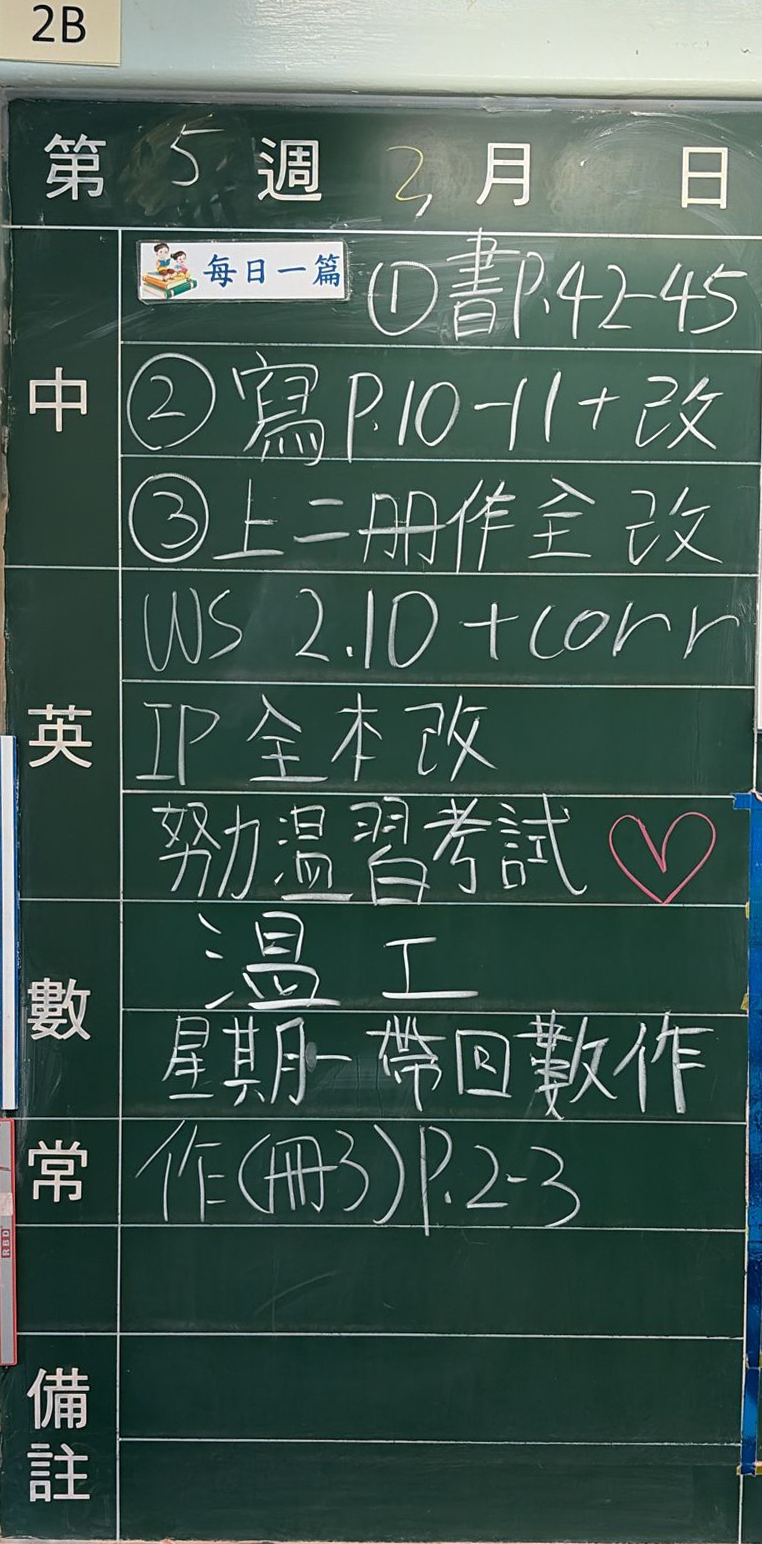 2B
第 5 週 2 月 日
中 每日一篇 ①書P.42-45
②寫P.10-11+改
③上二冊作全改
英 WS 2.10 +corr
IP 全本改
努力溫習考試
數 溫工
星期一帶回數作
常 作(冊3)P.2-3
備註
RBD